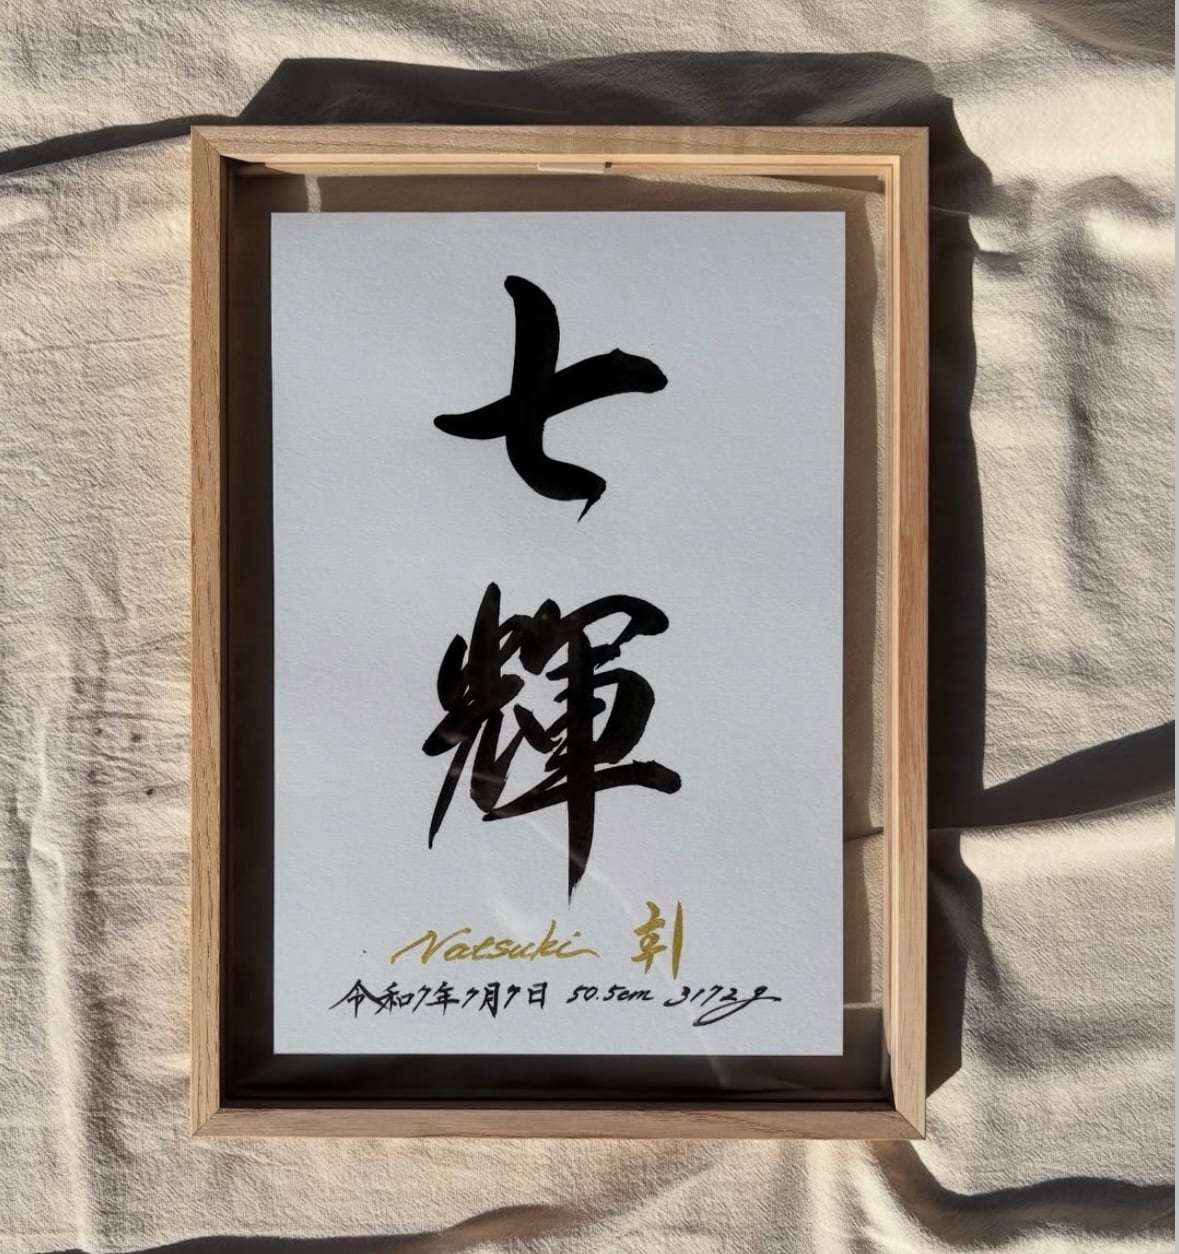 七輝
Natsuki 휘
令和7年7月7日 50.5cm 3172g